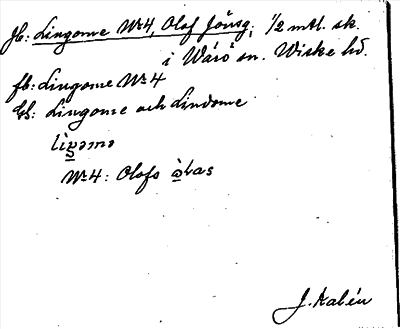 Jb: Lingome No 4, Olof Jönsg. 1/2 mtl. sk.
i Wärö sn. Wiske hd.
fb: Lingome No 4
Lingome och Lindome
No 4: Olofs
J. Kalén